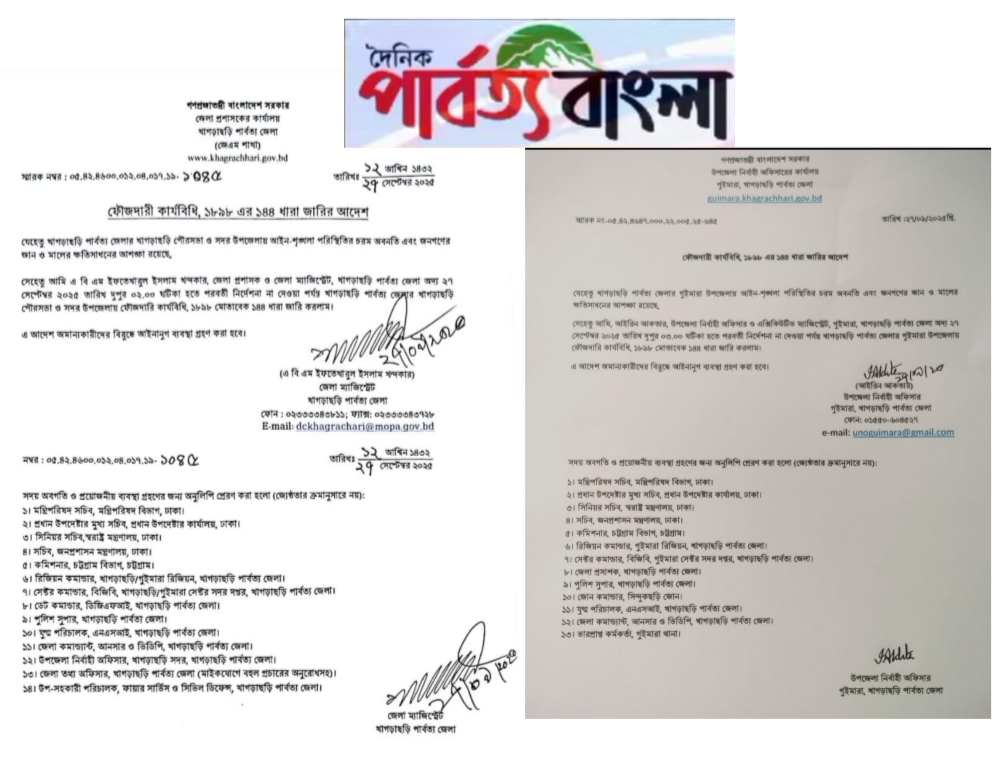 দৈনিক
পার্বত্য বাংলা
গণপ্রজাতন্ত্রী বাংলাদেশ সরকার
জেলা প্রশাসকের কার্যালয়
খাগড়াছড়ি পার্বত্য জেলা
(জেএম শাখা)
www.khagrachhari.gov.bd
স্মারক নম্বর : ০৫.৪২.৪৬০০.০১২.০৪.০১৭.১৯- ১০৪৫
তারিখঃ ১২ আশ্বিন ১৪৩২
২৭ সেপ্টেম্বর ২০২৫
ফৌজদারী কার্যবিধি, ১৮৯৮ এর ১৪৪ ধারা জারির আদেশ
যেহেতু খাগড়াছড়ি পার্বত্য জেলার খাগড়াছড়ি পৌরসভা ও সদর উপজেলায় আইন-শৃঙ্খলা পরিস্থিতির চরম অবনতি এবং জনগণের
জান ও মালের ক্ষতিসাধনের আশঙ্কা রয়েছে,
সেহেতু আমি এ বি এম ইফতেখারুল ইসলাম খন্দকার, জেলা প্রশাসক ও জেলা ম্যাজিস্ট্রেট, খাগড়াছড়ি পার্বত্য জেলা অদ্য ২৭
সেপ্টেম্বর ২০২৫ তারিখ দুপুর ০২.০০ ঘটিকা হতে পরবর্তী নির্দেশনা না দেওয়া পর্যন্ত খাগড়াছড়ি পার্বত্য জেলার খাগড়াছড়ি
পৌরসভা ও সদর উপজেলায় ফৌজদারী কার্যবিধি, ১৮৯৮ মোতাবেক ১৪৪ ধারা জারি করলাম।
এ আদেশ অমান্যকারীদের বিরুদ্ধে আইনানুগ ব্যবস্থা গ্রহণ করা হবে।
(এ বি এম ইফতেখারুল ইসলাম খন্দকার)
জেলা ম্যাজিস্ট্রেট
খাগড়াছড়ি পার্বত্য জেলা
ফোন : ০২৩৩৩৩৪৩৮১১; ফ্যাক্স: ০২৩৩৩৩৪৩৭২৮
E-mail: dckhagrachari@mopa.gov.bd
নম্বর : ০৫.৪২.৪৬০০.০১২.০৪.০১৭.১৯- ১০৪৫
তারিখঃ ১২ আশ্বিন ১৪৩২
২৭ সেপ্টেম্বর ২০২৫
সদয় অবগতি ও প্রয়োজনীয় ব্যবস্থা গ্রহণের জন্য অনুলিপি প্রেরণ করা হলো (জ্যেষ্ঠতার ক্রমানুসারে নয়):
১। মন্ত্রিপরিষদ সচিব, মন্ত্রিপরিষদ বিভাগ, ঢাকা।
২। প্রধান উপদেষ্টার মুখ্য সচিব, প্রধান উপদেষ্টার কার্যালয়, ঢাকা।
৩। সিনিয়র সচিব,স্বরাষ্ট্র মন্ত্রণালয়, ঢাকা।
৪। সচিব, জনপ্রশাসন মন্ত্রণালয়, ঢাকা।
৫। কমিশনার, চট্টগ্রাম বিভাগ, চট্টগ্রাম।
৬। রিজিয়ন কমান্ডার, খাগড়াছড়ি/গুইমারা রিজিয়ন, খাগড়াছড়ি পার্বত্য জেলা।
৭। সেক্টর কমান্ডার, বিজিবি, খাগড়াছড়ি/গুইমারা সেক্টর সদর দপ্তর, খাগড়াছড়ি পার্বত্য জেলা।
৮। ডেট কমান্ডার, ডিজিএফআই, খাগড়াছড়ি পার্বত্য জেলা।
৯। পুলিশ সুপার, খাগড়াছড়ি পার্বত্য জেলা।
১০। যুগ্ম পরিচালক, এনএসআই, খাগড়াছড়ি পার্বত্য জেলা।
১১। জেলা কমান্ড্যান্ট, আনসার ও ভিডিপি, খাগড়াছড়ি পার্বত্য জেলা।
১২। উপজেলা নির্বাহী অফিসার, খাগড়াছড়ি সদর, খাগড়াছড়ি পার্বত্য জেলা।
১৩। জেলা তথ্য অফিসার, খাগড়াছড়ি পার্বত্য জেলা (মাইকযোগে বহুল প্রচারের অনুরোধসহ)।
১৪। উপ-সহকারী পরিচালক, ফায়ার সার্ভিস ও সিভিল ডিফেন্স, খাগড়াছড়ি পার্বত্য জেলা।
জেলা ম্যাজিস্ট্রেট
খাগড়াছড়ি পার্বত্য জেলা
গণপ্রজাতন্ত্রী বাংলাদেশ সরকার
উপজেলা নির্বাহী অফিসারের কার্যালয়
গুইমারা, খাগড়াছড়ি পার্বত্য জেলা
guimara.khagrachhari.gov.bd
স্মারক নং-০৫.৪২.৪৬৪৭.০০০.২২.০০৫.২৫-৬৪৫
তারিখ :২৭/০৯/২০২৫খ্রি.
ফৌজদারী কার্যবিধি, ১৮৯৮ এর ১৪৪ ধারা জারির আদেশ
যেহেতু খাগড়াছড়ি পার্বত্য জেলার গুইমারা উপজেলায় আইন-শৃঙ্খলা পরিস্থিতির চরম অবনতি এবং জনগণের জান ও মালের
ক্ষতিসাধনের আশঙ্কা রয়েছে,
সেহেতু আমি, আইরিন আকতার, উপজেলা নির্বাহী অফিসার ও এক্সিকিউটিভ ম্যাজিস্ট্রেট, গুইমারা, খাগড়াছড়ি পার্বত্য জেলা অদ্য ২৭
সেপ্টেম্বর ২০২৫ তারিখ দুপুর ০৩.০০ ঘটিকা হতে পরবর্তী নির্দেশনা না দেওয়া পর্যন্ত খাগড়াছড়ি পার্বত্য জেলার গুইমারা উপজেলায়
ফৌজদারি কার্যবিধি, ১৮৯৮ মোতাবেক ১৪৪ ধারা জারি করলাম।
এ আদেশ অমান্যকারীদের বিরুদ্ধে আইনানুগ ব্যবস্থা গ্রহণ করা হবে।
(আইরিন আকতার)
উপজেলা নির্বাহী অফিসার
গুইমারা, খাগড়াছড়ি পার্বত্য জেলা
ফোন: ০১৫৫০-৬০৪৫২৭
e-mail: unoguimara@gmail.com
সদয় অবগতি ও প্রয়োজনীয় ব্যবস্থা গ্রহণের জন্য অনুলিপি প্রেরণ করা হলো (জ্যেষ্ঠতার ক্রমানুসারে নয়):
১। মন্ত্রিপরিষদ সচিব, মন্ত্রিপরিষদ বিভাগ, ঢাকা।
২। প্রধান উপদেষ্টার মুখ্য সচিব, প্রধান উপদেষ্টার কার্যালয়, ঢাকা।
৩। সিনিয়র সচিব, স্বরাষ্ট্র মন্ত্রণালয়, ঢাকা।
৪। সচিব, জনপ্রশাসন মন্ত্রণালয়, ঢাকা।
৫। কমিশনার, চট্টগ্রাম বিভাগ, চট্টগ্রাম।
৬। রিজিয়ন কমান্ডার, গুইমারা রিজিয়ন, খাগড়াছড়ি পার্বত্য জেলা।
৭। সেক্টর কমান্ডার, বিজিবি, গুইমারা সেক্টর সদর দপ্তর, খাগড়াছড়ি পার্বত্য জেলা।
৮। জেলা প্রশাসক, খাগড়াছড়ি পার্বত্য জেলা।
৯। পুলিশ সুপার, খাগড়াছড়ি পার্বত্য জেলা।
১০। জোন কমান্ডার, সিন্দুকছড়ি জোন।
১১। যুগ্ম পরিচালক, এনএসআই, খাগড়াছড়ি পার্বত্য জেলা।
১২। জেলা কমান্ড্যান্ট, আনসার ও ভিডিপি, খাগড়াছড়ি পার্বত্য জেলা।
১৩। ভারপ্রাপ্ত কর্মকর্তা, গুইমারা থানা।
উপজেলা নির্বাহী অফিসার
গুইমারা, খাগড়াছড়ি পার্বত্য জেলা